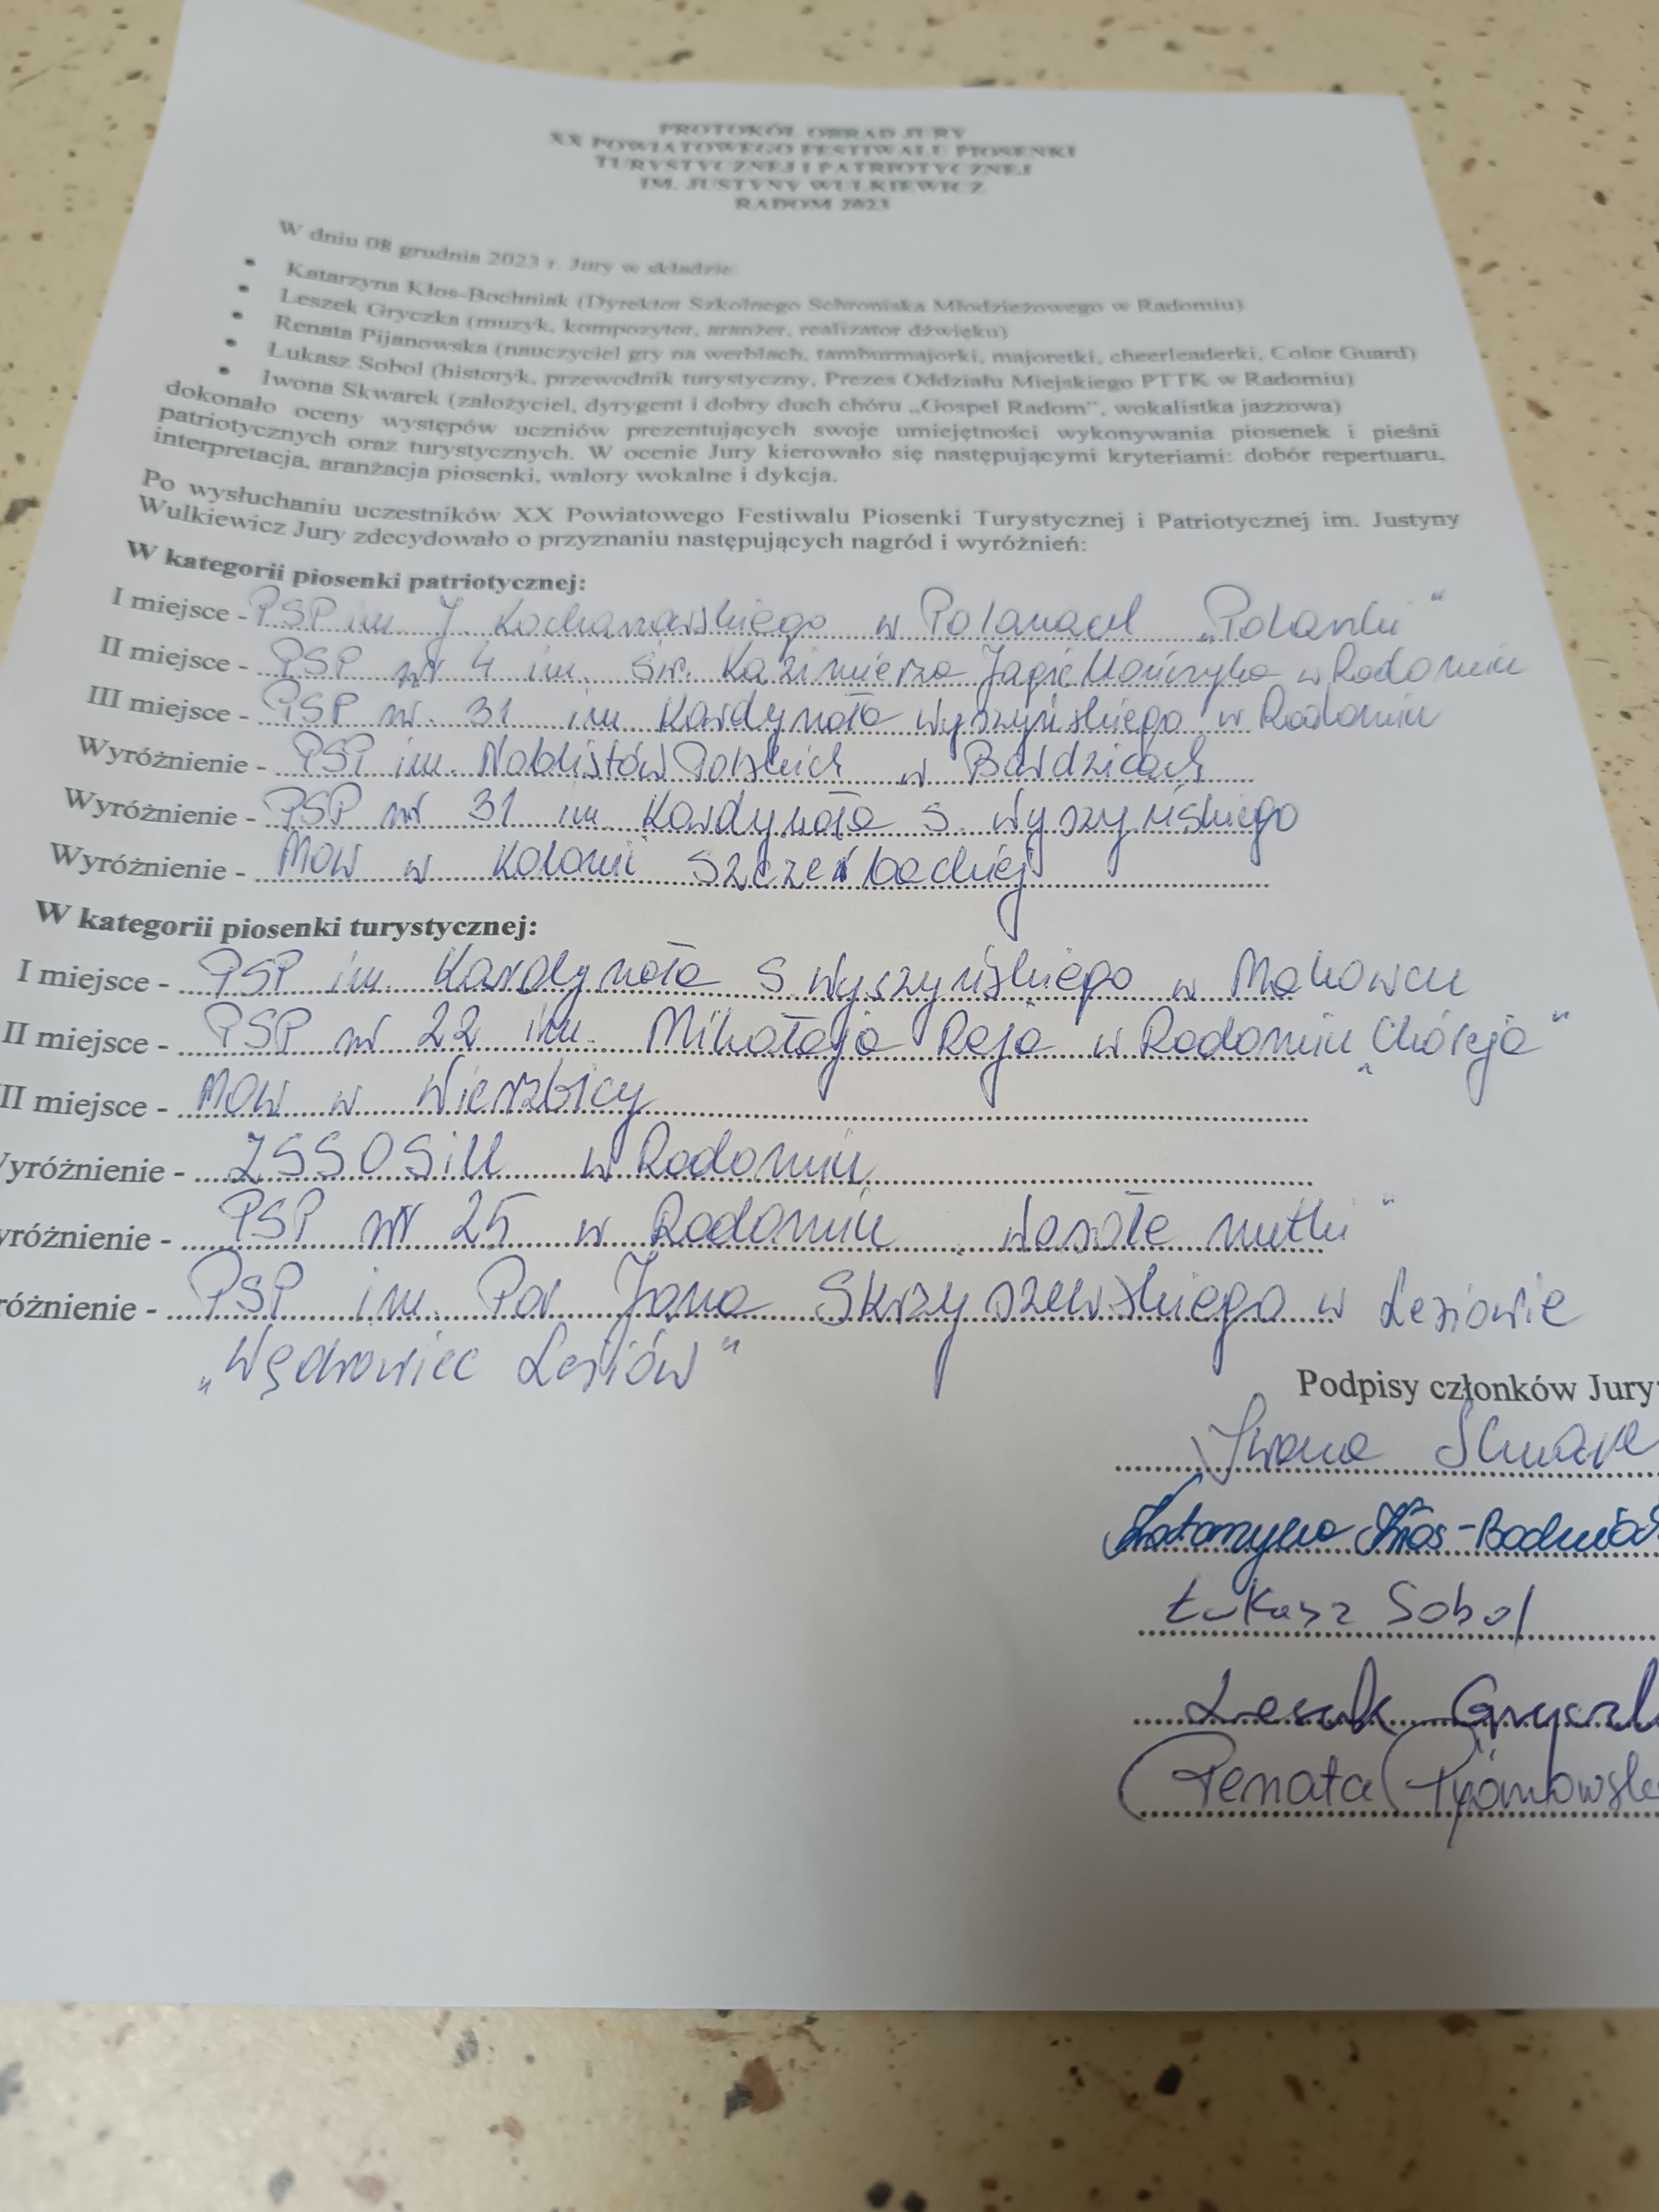 PROTOKÓŁ OBRAD JURY
XX POWIATOWEGO FESTIWALU PIOSENKI
TURYSTYCZNEJ I PATRIOTYCZNEJ
IM. JUSTYNY WULKIEWICZ
RADOM 2023
W dniu 08 grudnia 2023 r. Jury w składzie:
• Katarzyna Kłos-Bochniak (Dyrektor Szkolnego Schroniska Młodzieżowego w Radomiu)
• Leszek Gryczka (muzyk, kompozytor, aranżer, realizator dźwięku)
• Renata Pijanowska (nauczyciel gry na werblach, tamburmajorki, majoretki, cheerleaderki, Color Guard)
• Łukasz Sobol (historyk, przewodnik turystyczny, Prezes Oddziału Miejskiego PTTK w Radomiu)
• Iwona Skwarek (założyciel, dyrygent i dobry duch chóru „Gospel Radom”, wokalistka jazzowa)
dokonało oceny występów uczniów prezentujących swoje umiejętności wykonywania piosenek i pieśni
patriotycznych oraz turystycznych. W ocenie Jury kierowało się następującymi kryteriami: dobór repertuaru,
interpretacja, aranżacja piosenki, walory wokalne i dykcja.
Po wysłuchaniu uczestników XX Powiatowego Festiwalu Piosenki Turystycznej i Patriotycznej im. Justyny
Wulkiewicz Jury zdecydowało o przyznaniu następujących nagród i wyróżnień:
W kategorii piosenki patriotycznej:
I miejsce - PSP im. J. Kochanowskiego w Polanach „Polanki”
II miejsce - PSP nr 4 im. św. Kazimierza Jagiellończyka w Radomiu
III miejsce - PSP nr. 31 im Kardynała Wyszyńskiego w Radomiu
Wyróżnienie - PSP im. Noblistów Polskich w Bardzicach
Wyróżnienie - PSP nr 31 im. Kardynała S. Wyszyńskiego
Wyróżnienie - MOW w Kolonii Szczerbackiej
W kategorii piosenki turystycznej:
I miejsce - PSP im. Kardynała S. Wyszyńskiego w Makowcu
II miejsce - PSP nr 22 im. Mikołaja Reja w Radomiu „Chóreja”
II miejsce - MOW w Wierzbicy
yróżnienie - ZSSOSiM w Radomiu
yróżnienie - PSP nr 25 w Radomiu „Wesołe nutki”
różnienie - PSP im. Por Jana Skrzyszewskiego w Lesiowie
„Wędrowiec Lesiów”
Podpisy członków Jury:
Iwona Skware
Katarzyna Kłos-Bochniak
Łukasz Sobol
Leszek Gryczk
Renata Pijanowska